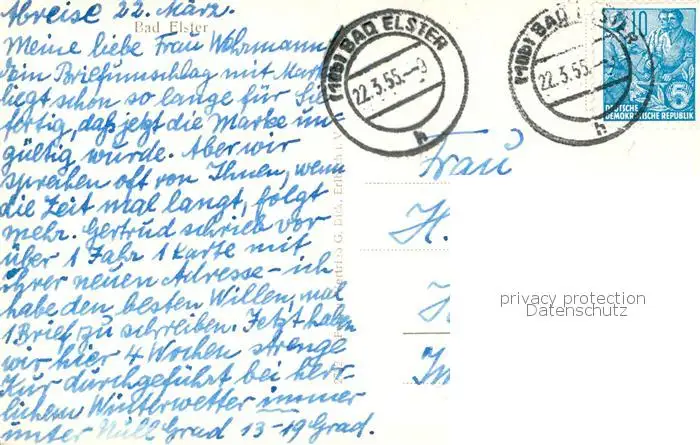 Abreise 22. März.
Bad Elster
Meine liebe Frau Wöhrmann
Ein Briefumschlag mit Marke
liegt schon so lange für Sie
fertig, daß jetzt die Marke un-
gültig wurde. Aber wir
sprechen oft von Ihnen, wenn
die Zeit mal langt, folgt
mehr. Gertrud schrieb vor
über 1 Jahr 1 Karte mit
ihrer neuen Adresse - ich
habe den besten Willen, mal
1 Brief zu schreiben. Jetzt haben
wir hier 4 Wochen strenge
Kur durchgeführt bei herr-
lichem Winterwetter immer
unter Null Grad 13-19 Grad.
(10b) BAD ELSTER
22.3.55.-9
h
(10b) BAD ELSTER
22.3.55.-9
h
10
DEUTSCHE
DEMOKRATISCHE REPUBLIK
Frau
H.
privacy protection
Datenschutz